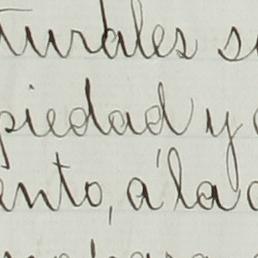 turales s
piedad y
ento, á la